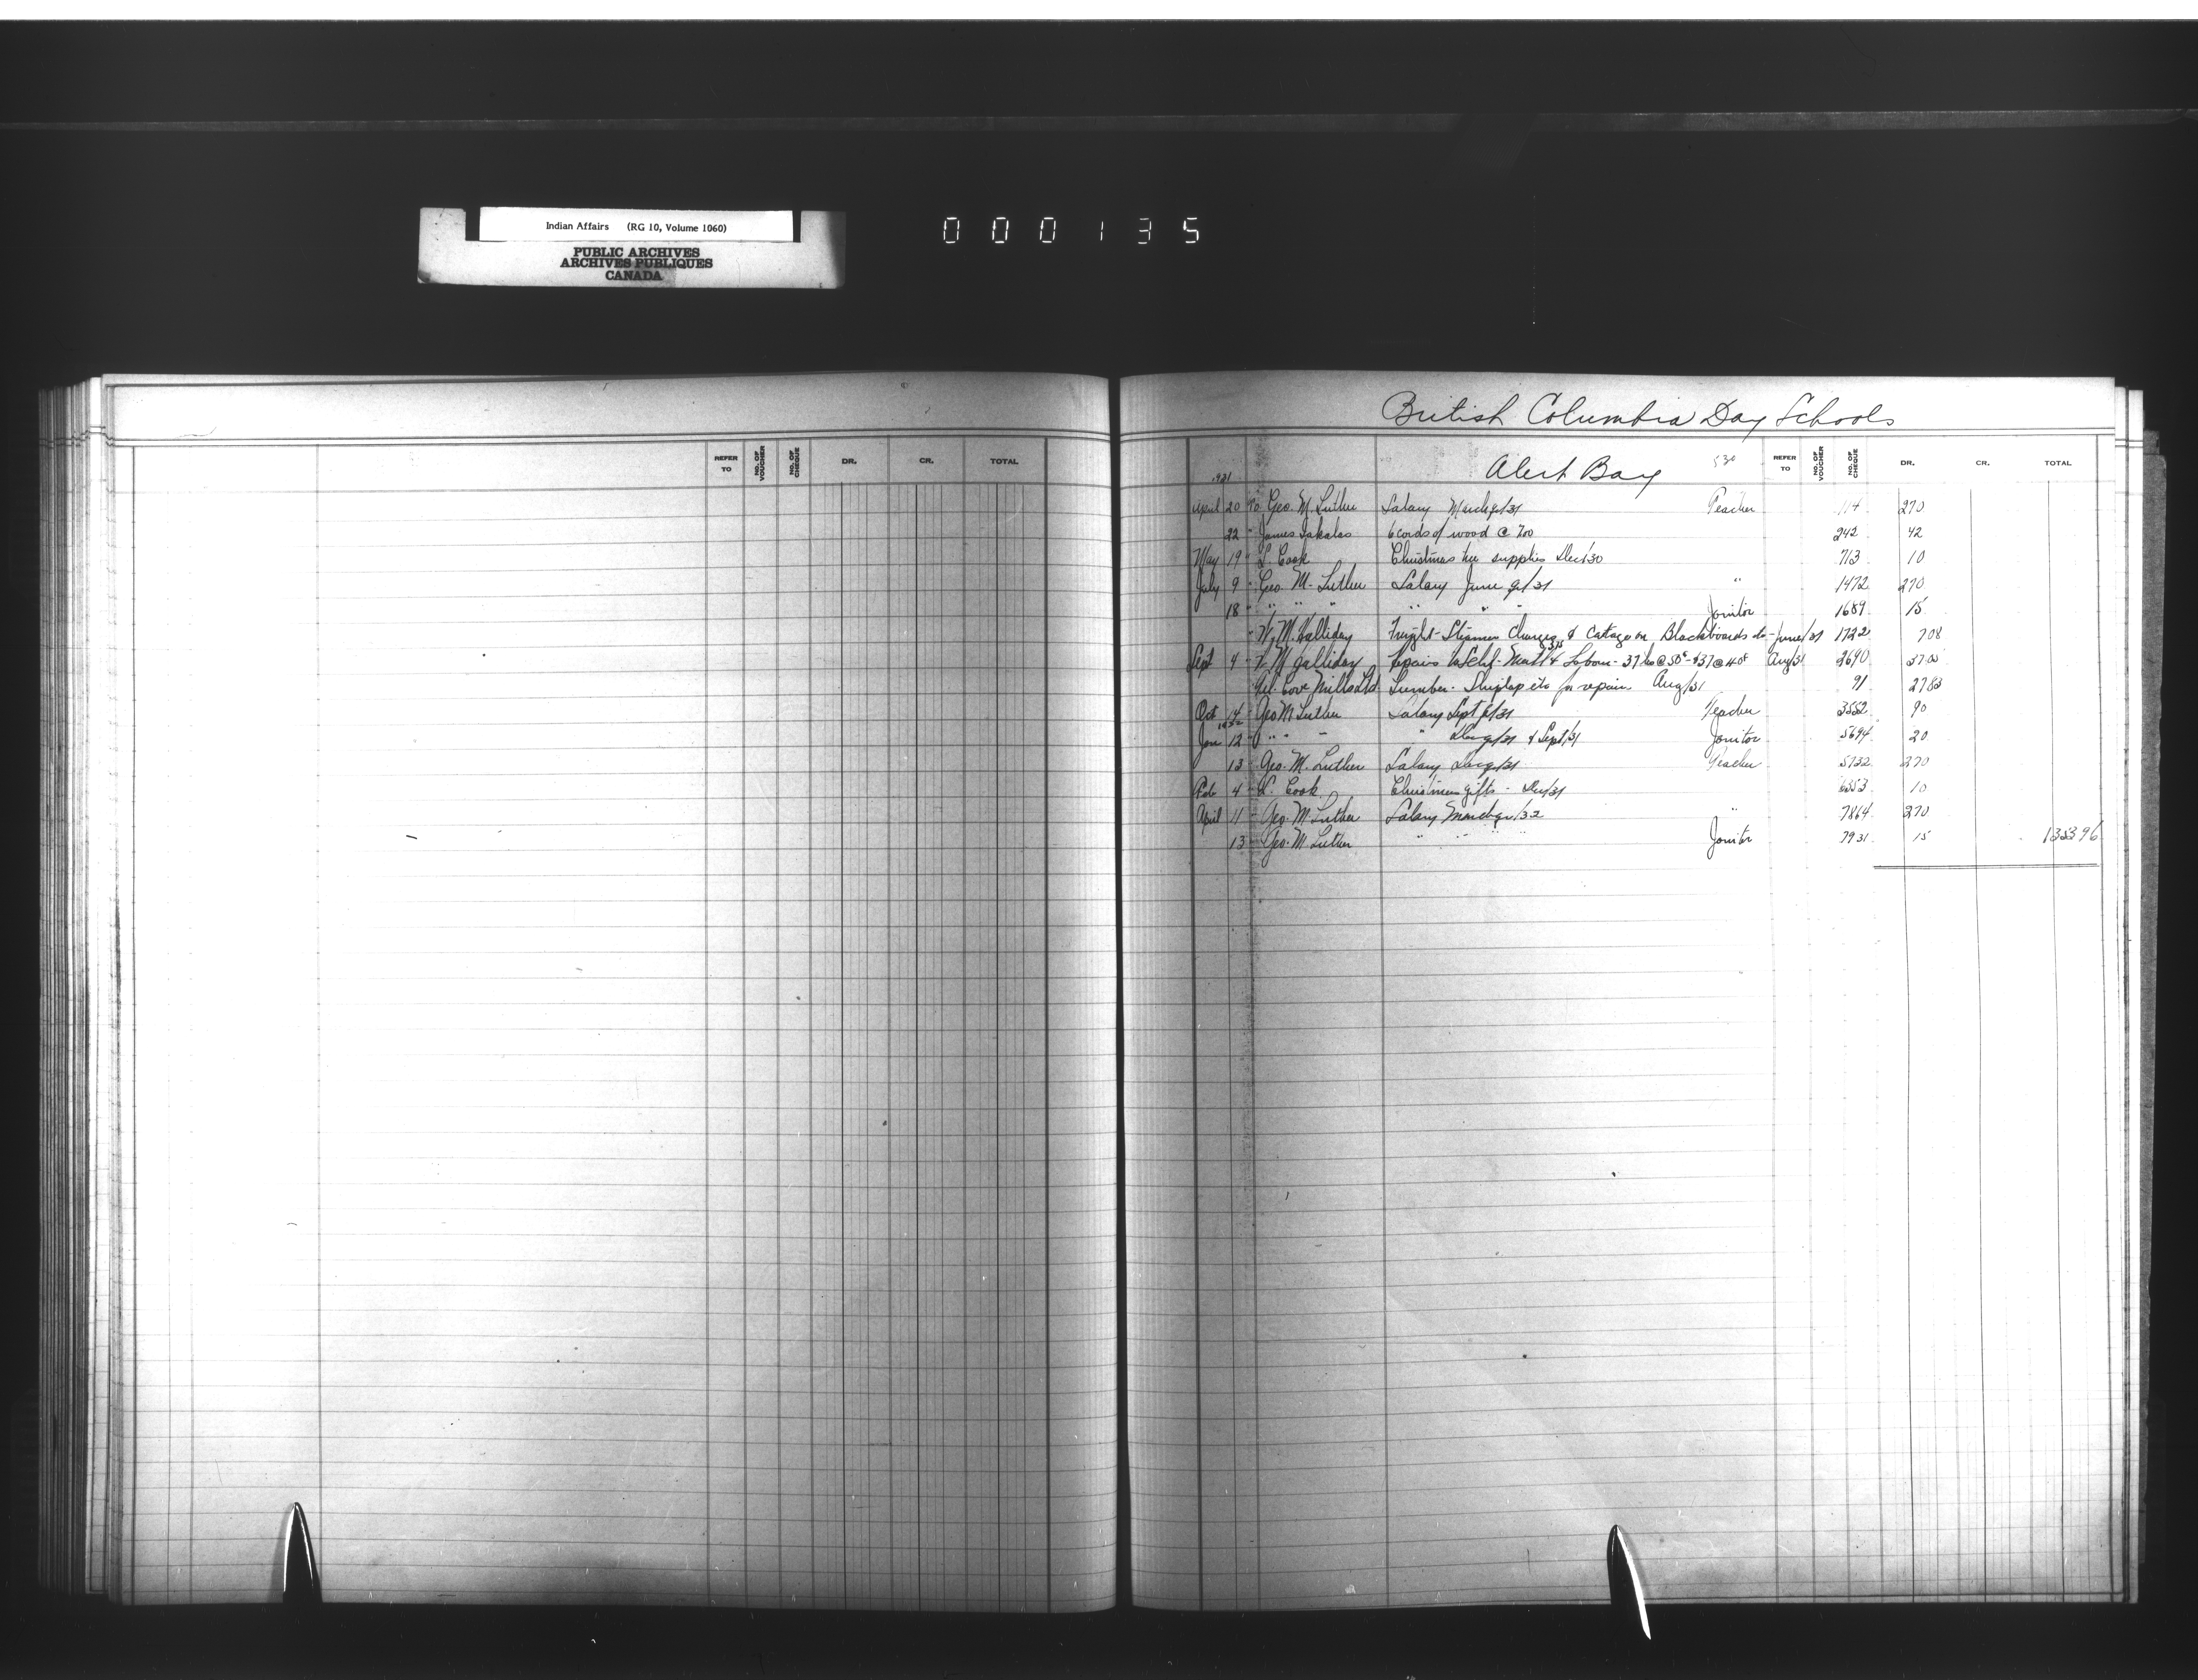 Indian Affairs (RG 10, Volume 1060)
PUBLIC ARCHIVES
ARCHIVES PUBLIQUES
CANADA
000135
British Columbia Day Schools
REFER TO NO. OF VOUCHER NO. OF CHEQUE DR. CR. TOTAL
Alert Bay 530 REFER TO NO. OF VOUCHER NO. OF CHEQUE DR. CR. TOTAL
1931
April 20 To Geo. M. Luther Salary March qr/31 Teacher 114 270
22 " James 6 cords of wood @ 700 242 42
May 19 " S. Cook Christmas tree supplies Dec/30 713 10
July 9 " Geo. M. Luther Salary June qr/31 " 1472 270
18 " " " " " " " Janitor 1689 15
" W. M. Halliday Freight - Steamer Charges & Cartage on Blackboards etc - June/31 1722 708
Sept 4 " W. M. Halliday Repairs to Schl - Matl 375 & Labour - 37 hrs @ 50¢ - & 37 @ 40¢ Aug/31 2690 3705
Cove Mills Ltd. Lumber - Shiplap etc for repairs Aug/31 91 2783
Oct 14 " Geo M Luther Salary Sept qr/31 Teacher 3552 90
1932
Jan 12 " " " " " Dec qr/31 & Sept/31 Janitor 5694 20
13 " Geo. M. Luther Salary Dec qr/31 Teacher 5732 270
Feb 4 " S. Cook Christmas gifts - Dec/31 6353 10
April 11 " Geo. M. Luther Salary March qr/32 " 7864 270
13 " Geo. M. Luther " " " " Janitor 7931 15 135396